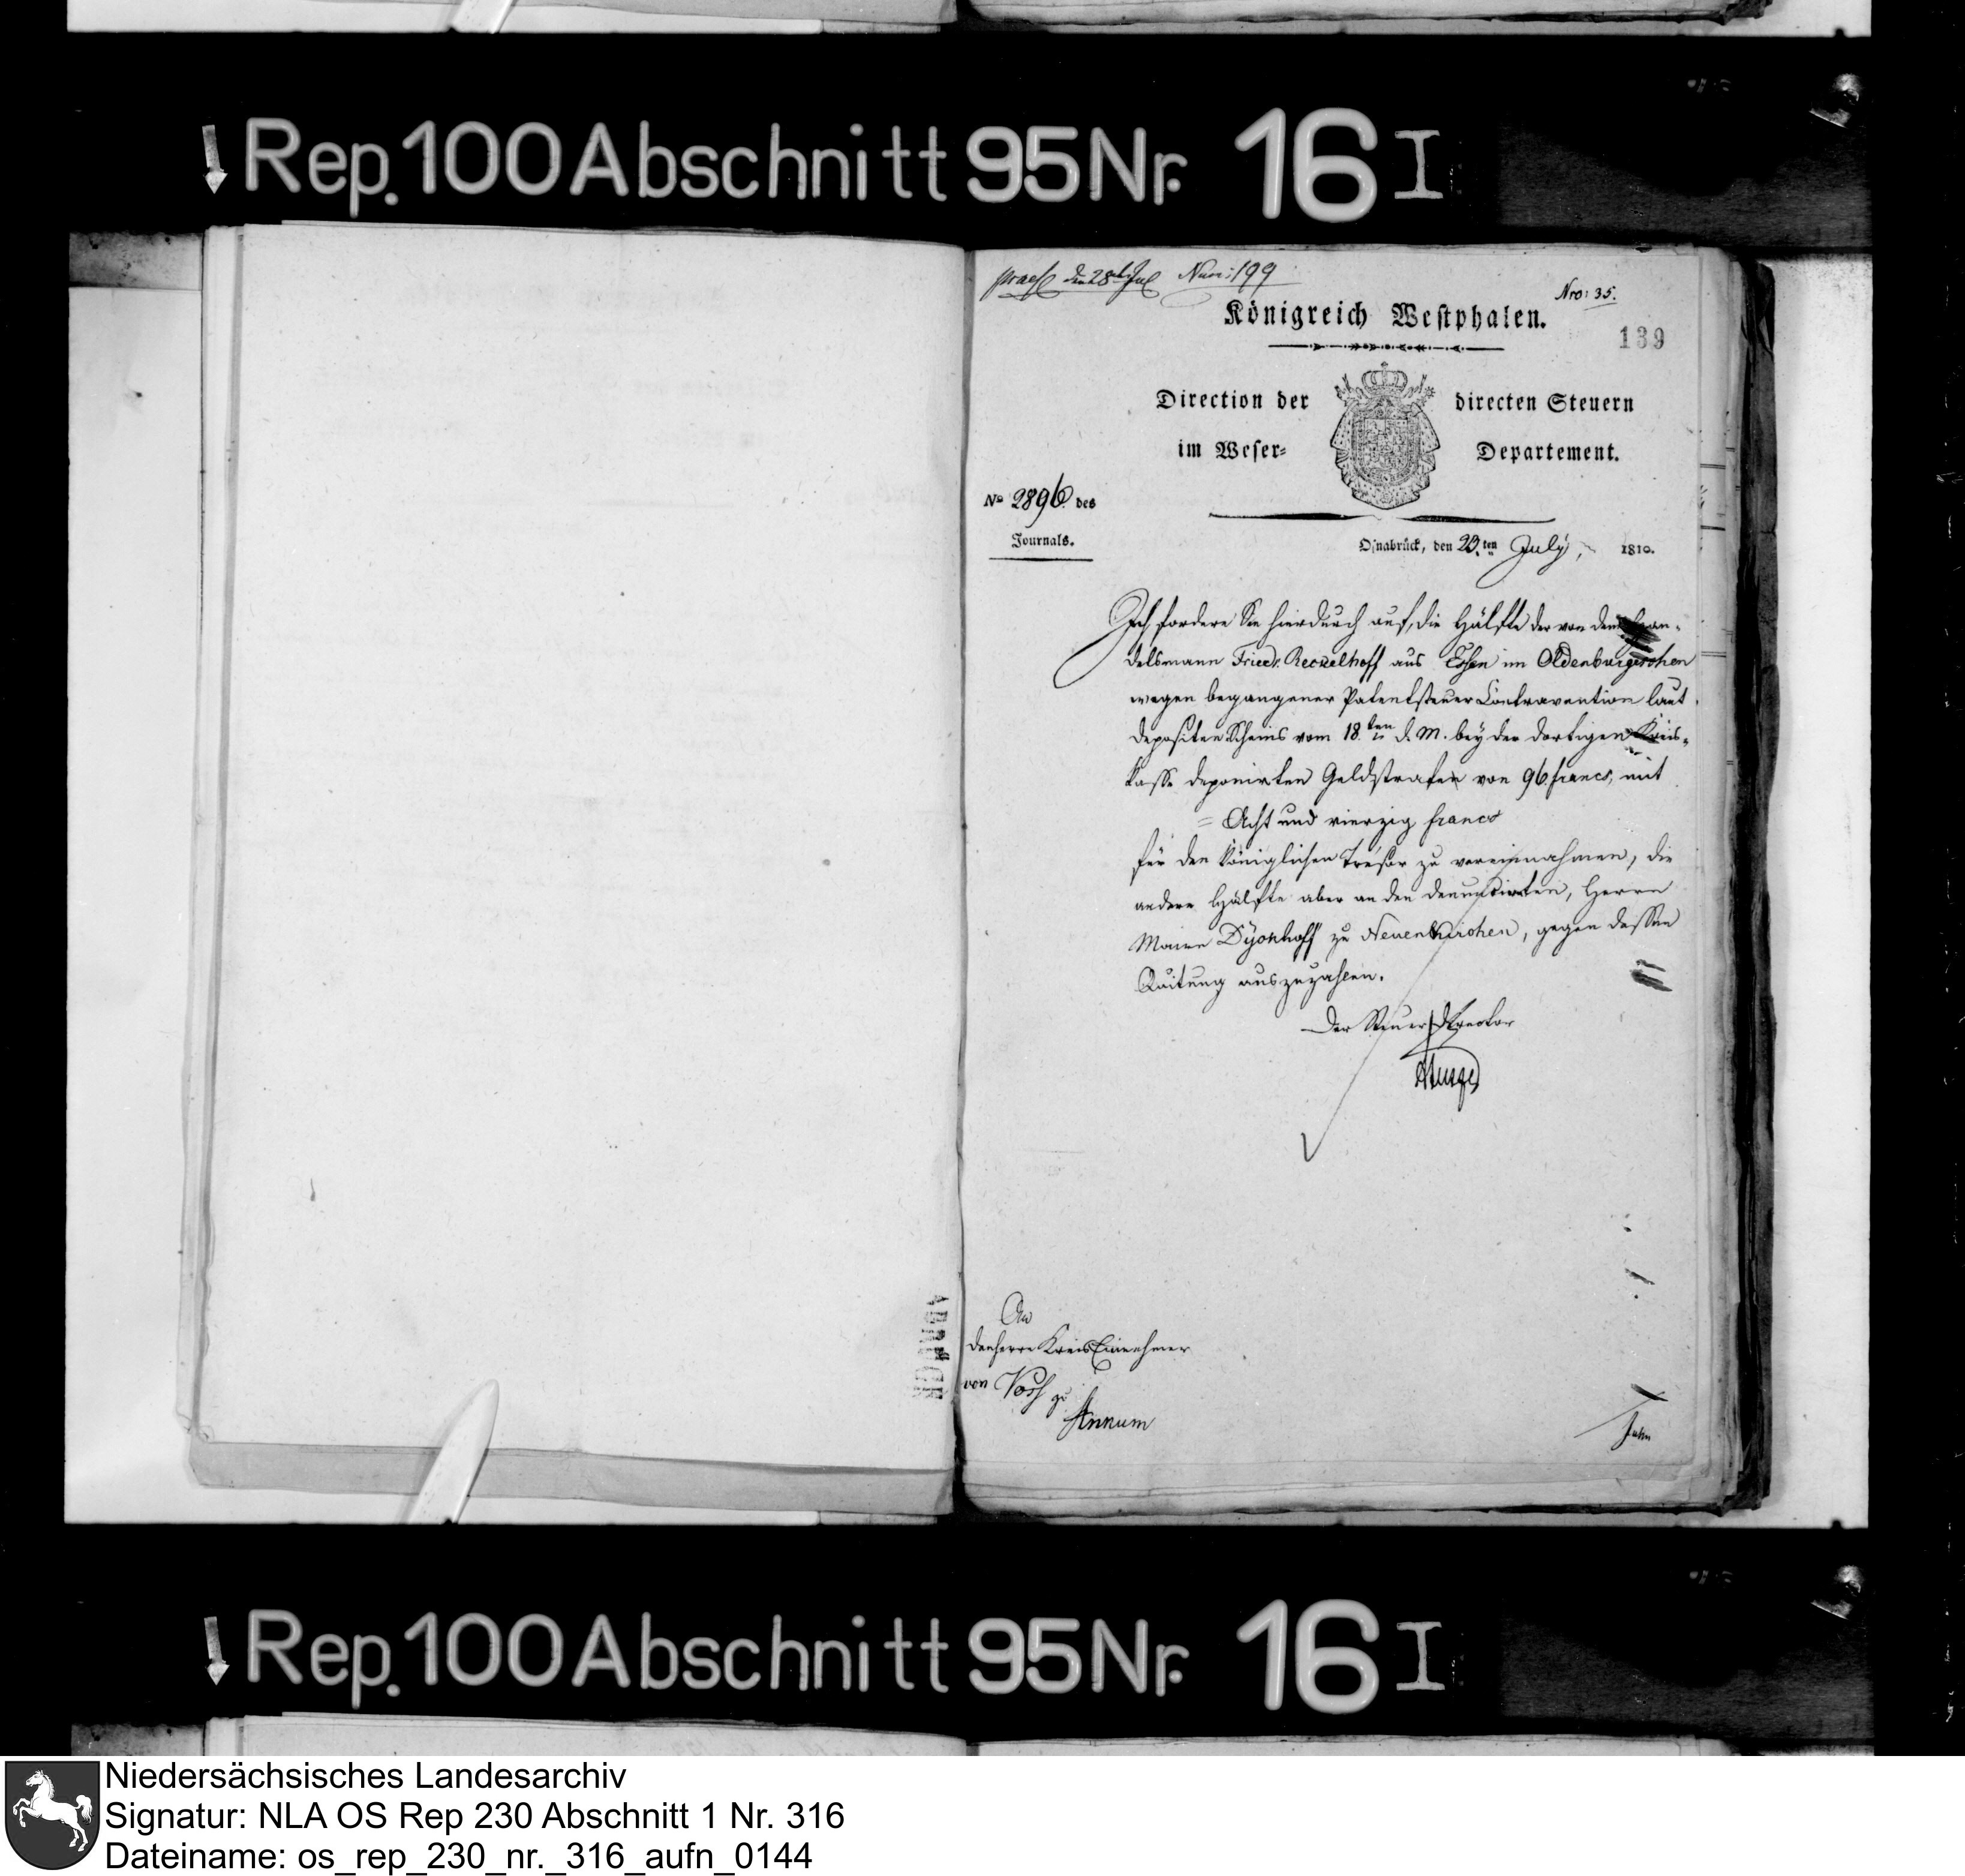 Rep. 100 Abschnitt 95 Nr. 16 I
praes. den 28t Jul Num: 199
Nro: 35.
Königreich Westphalen.
139
Direction der directen Steuern
im Weser- Departement.
No 2896. des
Journals.
Osnabrück, den 23.ten July, 1810.
Ich fordere Sie hierdurch auf, die Hälfte der von dem Han-
delsmann Friedr. Reckelhoff aus Essen im Oldenburgischen
wegen begangener Patentsteuer Contravention laut
Depositen Scheins vom 18.ten d. M. bey der dortigen Kreis-
kasse deponirten Geldstrafen von 96 francs, mit
= Acht und vierzig francs
für den Königlichen Trésor zu vereinnahmen, die
andere Hälfte aber an den Denuncirenten, Herrn
Maire Dyckhoff zu Neuenkirchen, gegen dessen
Quitung auszuzahlen.
Der Steuer Director
An
den Herrn Kreis Einnehmer
von Voss zu
Ankum
Rep. 100 Abschnitt 95 Nr. 16 I
Niedersächsisches Landesarchiv
Signatur: NLA OS Rep 230 Abschnitt 1 Nr. 316
Dateiname: os_rep_230_nr._316_aufn_0144